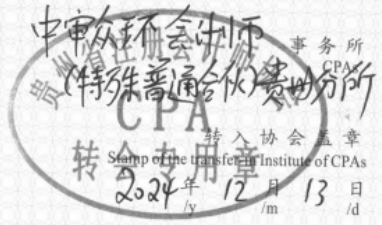 中审众环会计师事务所
CPAs
(特殊普通合伙)贵州分所
贵州省注册会计师协会
CPA
转会专用章
转入协会盖章
Stamp of the transfer-in Institute of CPAs
2024年12月13日
/y /m /d